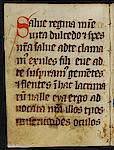 Salue regina mie
vita dulcedo ⁊ spes
nr̄a salue ad te clama
m⁹ exules filii eue ad
te suspiram⁹ gemētes
⁊ flentes ī hac lacrima
rū valle eya ergo ad
uocata nr̄a illos tuos
misericordes oculos